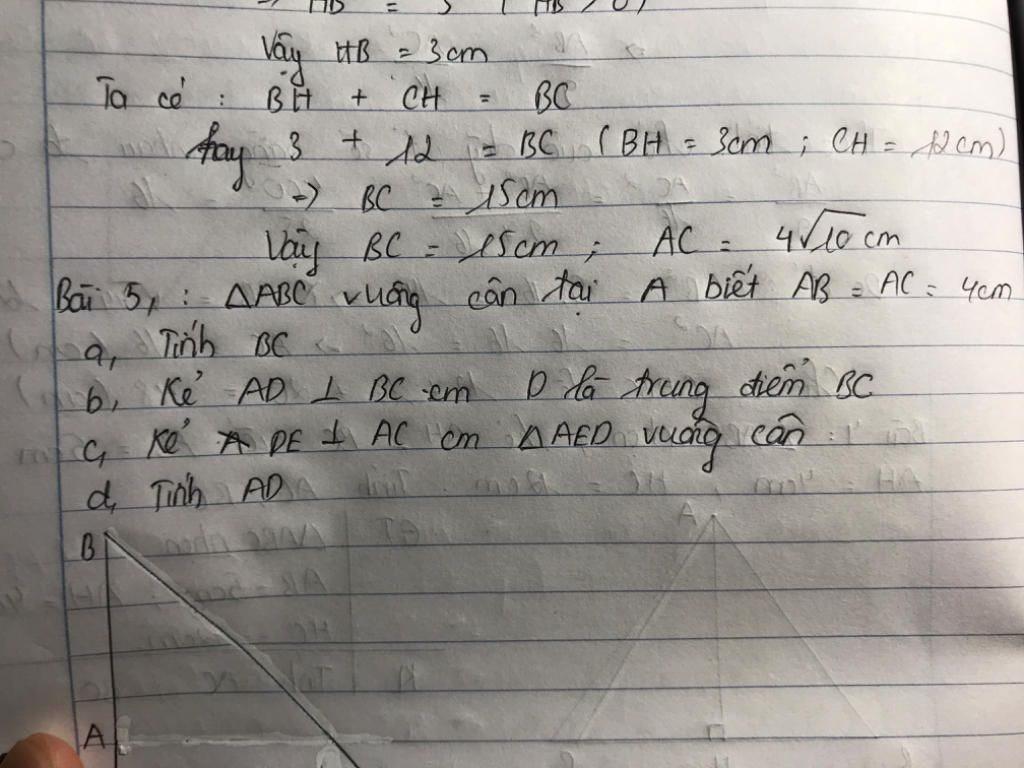 HB = 3 ( HB > 0)
Vậy HB = 3cm
Ta có : BH + CH = BC
hay 3 + 12 = BC ( BH = 3cm ; CH = 12cm)
=> BC = 15cm
Vậy BC = 15cm ; AC = 4√10 cm
Bài 5, : ΔABC vuông cân tại A biết AB = AC = 4cm
a, Tính BC
b, Kẻ AD ⊥ BC cm D là trung điểm BC
c, Kẻ DE ⊥ AC cm ΔAED vuông cân
d, Tính AD
B
A
A